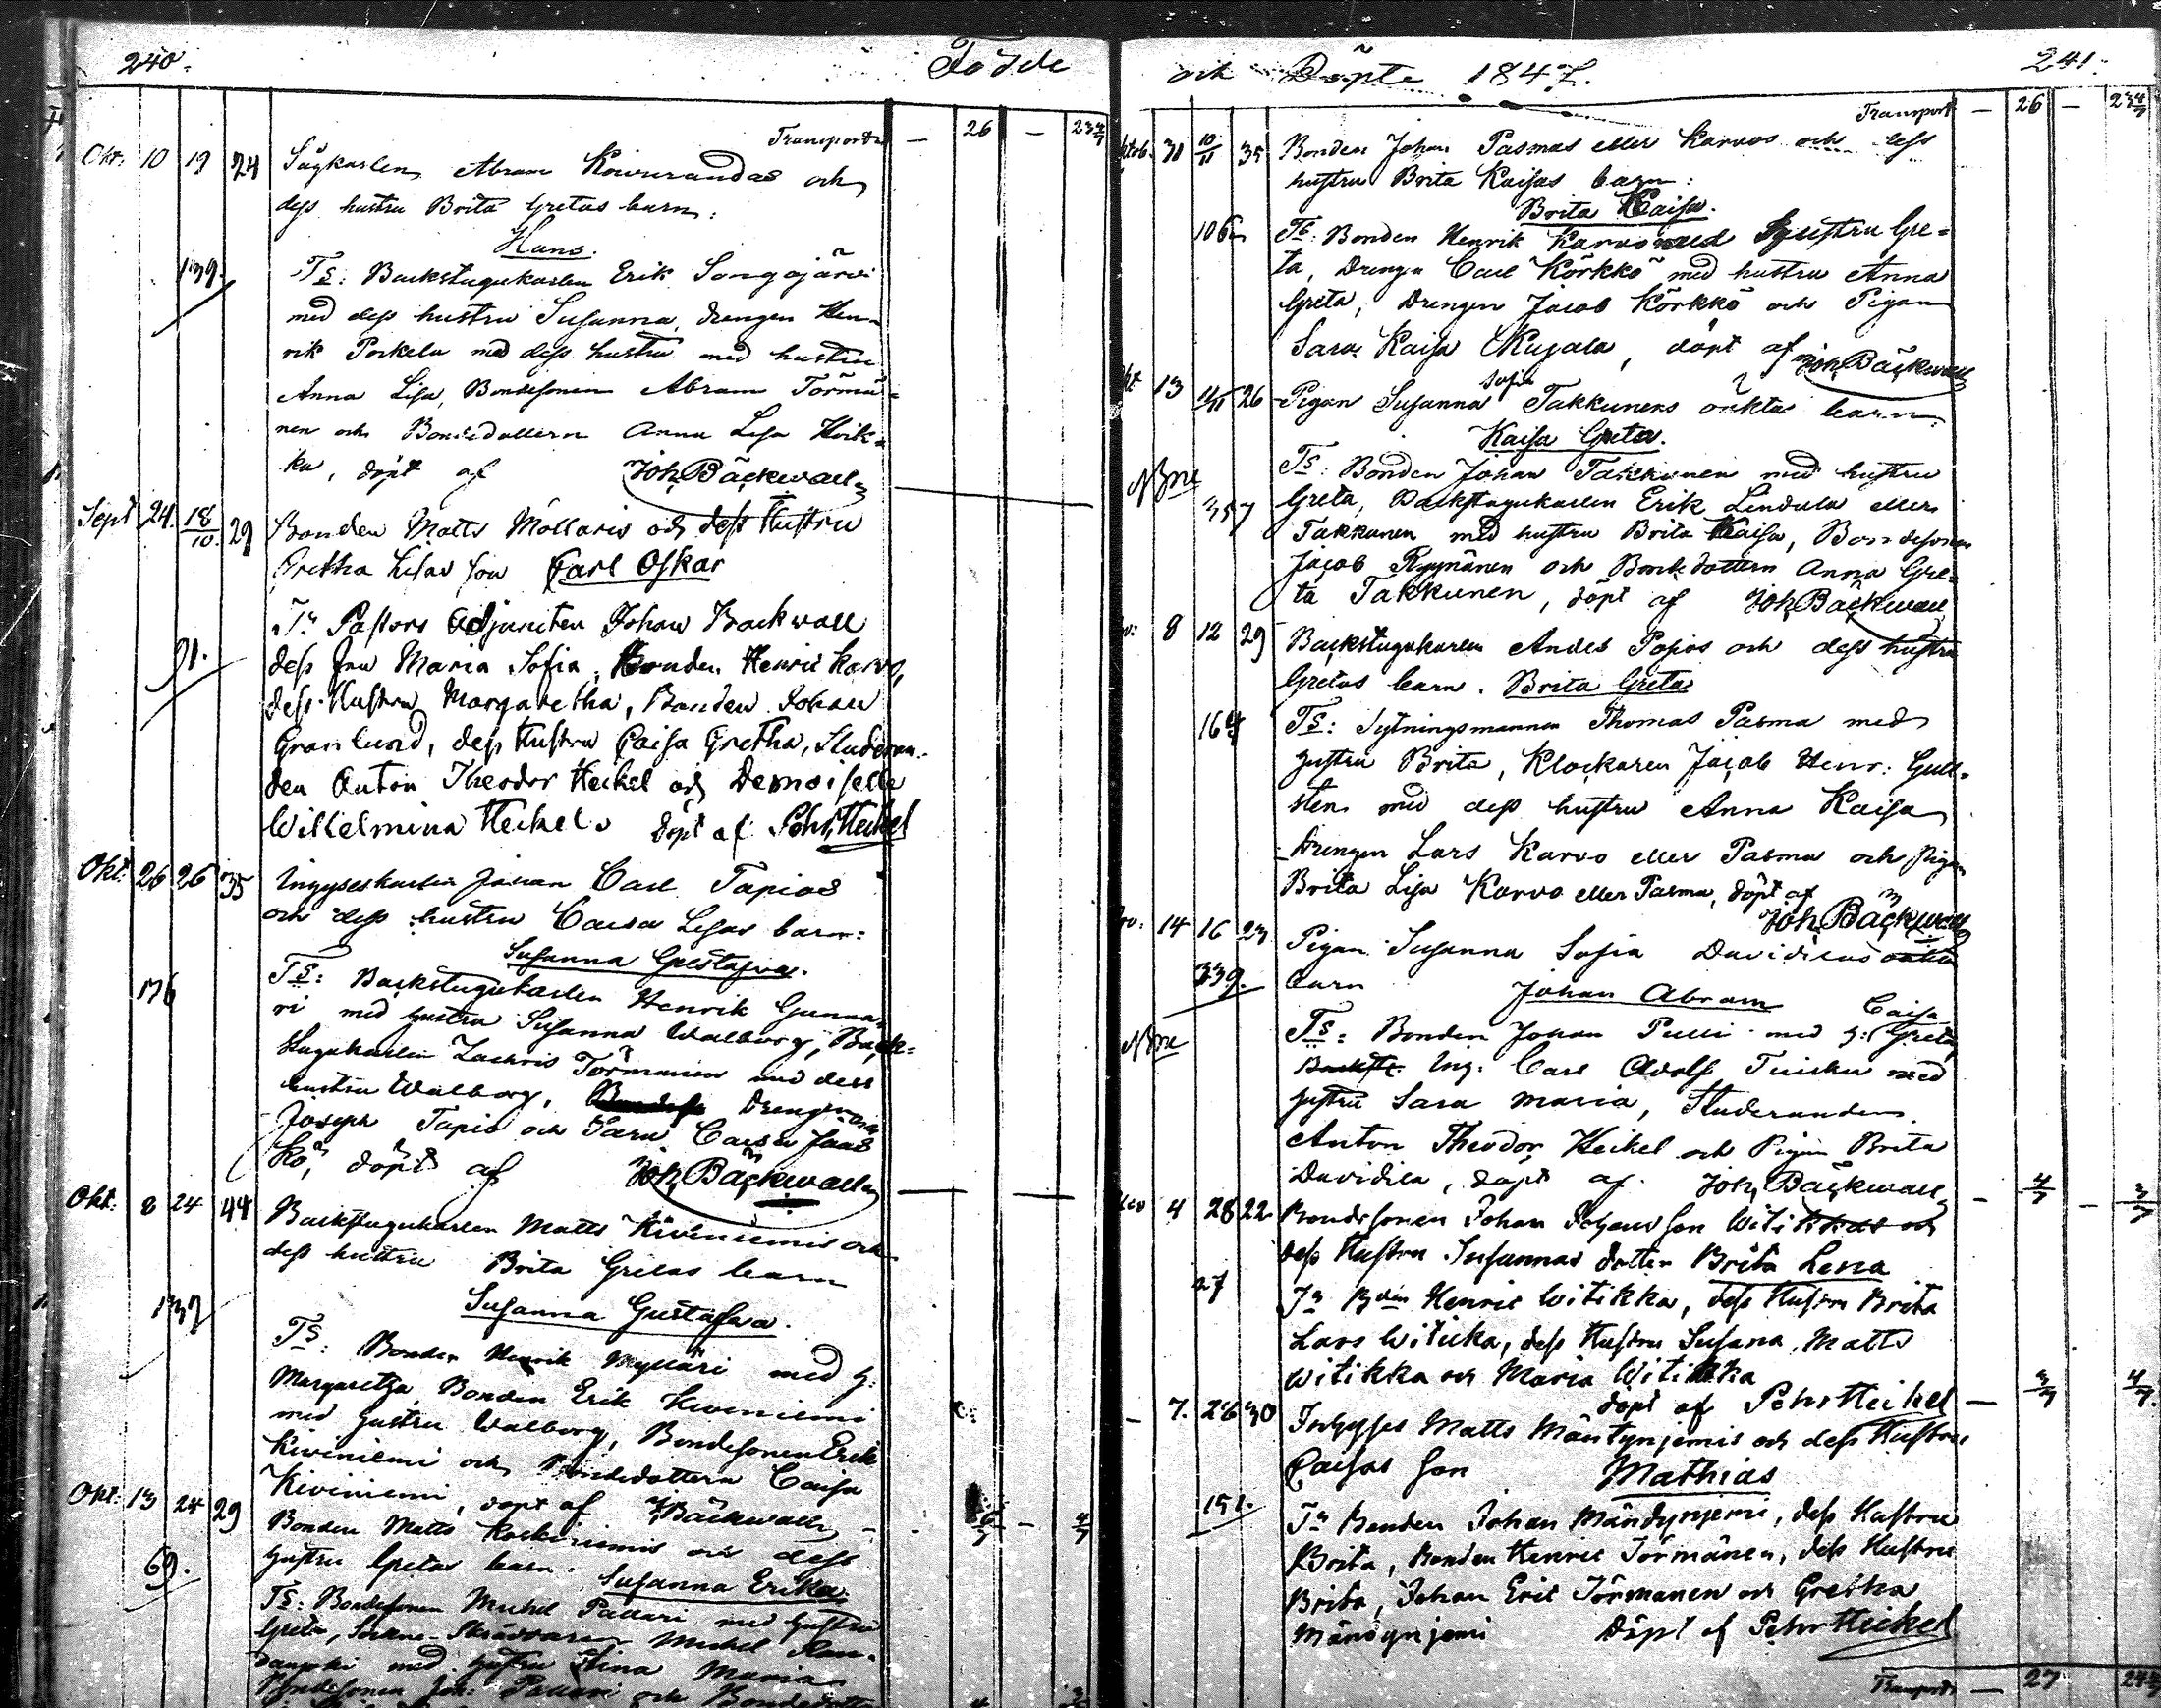 240.
Födde
Transport — 26 — 23 4/7
Okt: 10 19 24 Sågkarlen Abram Koivurandas och
dess hustru Brita Gretas barn:
Hans.
139. Ts: Backstugukarlen Erik Songajärvi
med dess hustru Susanna, drengen Hen-
rik Porkela med dess hustru med hustru
Anna Lisa, Bondesonen Abram Törmä-
nen och Bondedottern Anna Lisa
ka, döpt af Joh. Bäckwall
Sept 24. 18/10. 29 Bonden Matts Möllaris och dess Hustru
Gretha Lisas son Carl Oskar
Tn Pastors Adjuncten Johan Backwall
91. dess fru Maria Sofia, Bonden Henric Karvo,
dess Hustru Margaretha, Bonden Johan
Granlund, dess Hustru Caisa Gretha, Studeran-
den Anton Theodor Heikel och Demoiselle
Wilhelmina Heikel. döpt af Pehr Heikel
Okt: 26 26 35 Ingyseskarlen Johan Carl Tapios
och dess hustru Caisa Lisas barn:
Susanna Gustafva.
176 Ts: Backstugukarlen Henrik Gunna-
ri med hustru Susanna Walborg, Back-
stugukarlen Zachris Törmänen med dess
hustru Walborg, Drengen
Joseph Tapio och Sara Caisa Jaas
kö, döpt af Joh. Bäckwall
Okt: 8 24 44 Backstugukarlen Matts Kiviniemis och
dess hustru Brita Gretas barn
Susanna Gustafva.
137 Ts: Bonden Henrik Mylläri med h:
Margaretha, Bonden Erik Kiviniemi
med hustru Walborg, Bondesonen Erik
Kiviniemi och Bondedottern Caisa
Kiviniemi, döpt af J. Bäckwall
Okt: 13 24 29 Bonden Matts Koskiniemis och dess
hustru Gretas barn. Susanna Erika
69. Ts: Bondesonen Michel Pallari med hustru
Greta, Sockne-Skräddaren Michel
med hustru Stina Maria
Bondesonen Joh: Pallari och
och Döpte 1847.
241.
Transport — 26 — 23 4/7
31 10/11 35 Bonden Johan Pasmas eller Karvos och dess
hustru Brita Kaisas barn:
Brita Kaisa.
106 Ts: Bonden Henrik Karvo med hustru Gre-
ta, Drengen Carl Körkkö med hustru Anna
Greta, Drengen Jacob Körkkö och Pigan
Sara Kaisa Kujala, döpt af Joh. Bäckwall
13 11/11 26 Pigan Susanna Sofia Takkunens oäkta barn:
Kaisa Greta.
Ts: Bonden Johan Takkunen med hustru
357 Greta, Backstugukarlen Erik Lindula eller
Takkunen med hustru Brita Kaisa, Bondesonen
Jacob Ryynänen och Bondedottern Anna Gre-
ta Takkunen, döpt af Joh. Bäckwall
8 12 29 Backstugukarlen Anders Popios och dess hustru
Gretas barn. Brita Greta
164 Ts: Sytningsmannen Thomas Pasma med
hustru Brita, Klockaren Jacob Henr: Gull-
sten med dess hustru Anna Kaisa
Drengen Lars Karvo eller Pasma och pigan
Brita Lisa Karvo eller Pasma, döpt af
Joh. Bäckwall
14 16 23 Pigan Susanna Sofia Davidilas oäkta
339. barn Johan Abram
Ts: Bonden Johan Pulli med h: Caisa Greta
Ing. Carl Adolf Tuisku med
hustru Sara Maria, Studeranden
Anton Theodor Heikel och Pigan Brita
Davidila, döpt af Joh. Bäckwall
4 28 22 Bondesonen Johan Johansson Witikkas och
dess Hustru Susannas dotter Brita Lena
27 Tn Bden Henric Witikka, dess Hustru Brita
Lars Witikka, dess Hustru Susana, Matts
Witikka och Maria Witikka
döpt af Pehr Heikel
— 7. 28 30 Inhyses Matts Mäntyniemis och dess Hustru
Caisas son Mathias
151. Tn Bonden Johan Mändyniemi, dess Hustru
Brita, Bonden Henric Törmänen, dess Hustru
Brita, Johan Eric Törmänen och Gretha
Mändyniemi Döpt af Pehr Heikel
Transport — 27